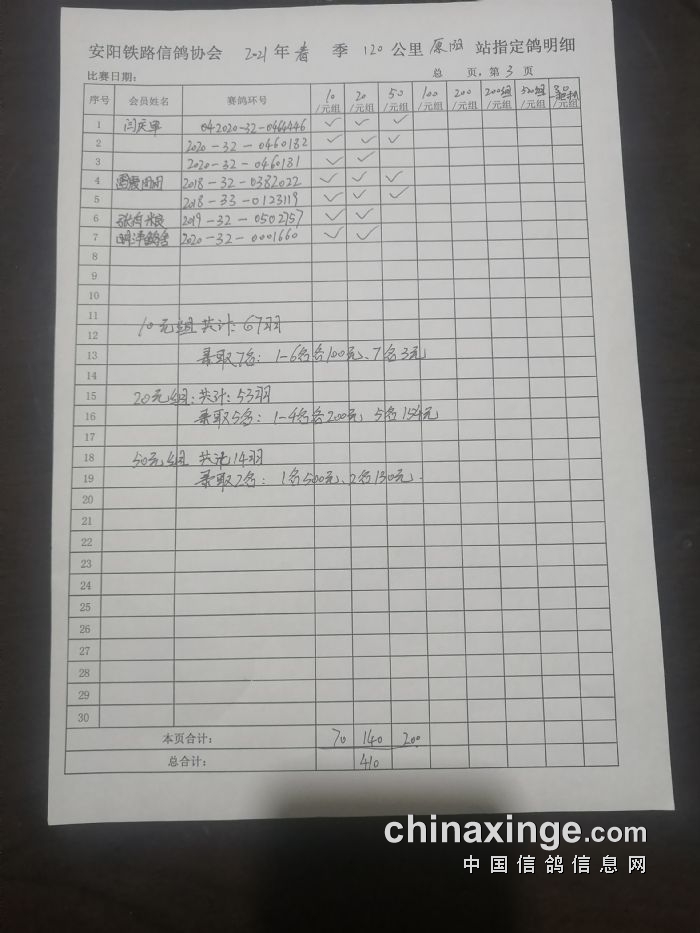 安阳铁路信鸽协会 2021年 春 季 120公里 原阳 站指定鸽明细
比赛日期: 总 页,第 3 页
序号 会员姓名 赛鸽环号 10/元组 20/元组 50/元组 100/元组 200/元组 200组/元组 500组/元组 /元组
1 闫庆军 042020-32-0464446 ✓ ✓ ✓
2 2020-32-0460182 ✓ ✓ ✓
3 2020-32-0460181 ✓ ✓
4 2018-32-0382022 ✓ ✓ ✓
5 2018-33-0123119 ✓ ✓ ✓
6 2019-32-0502757 ✓ ✓
7 明洋鸽舍 2020-32-0001660 ✓ ✓
8
9
10
11
10元组 共计:67羽
12
13 录取7名: 1-6名各100元、7名3元
14
15 20元组:共计:53羽
16 录取5名: 1-4名各200元, 5名154元
17
18 50元组 共计14羽
19 录取2名: 1名500元、2名130元.
20
21
22
23
24
25
26
27
28
29
30
本页合计: 70 140 200
总合计: 410
chinaxinge.com
中国信鸽信息网